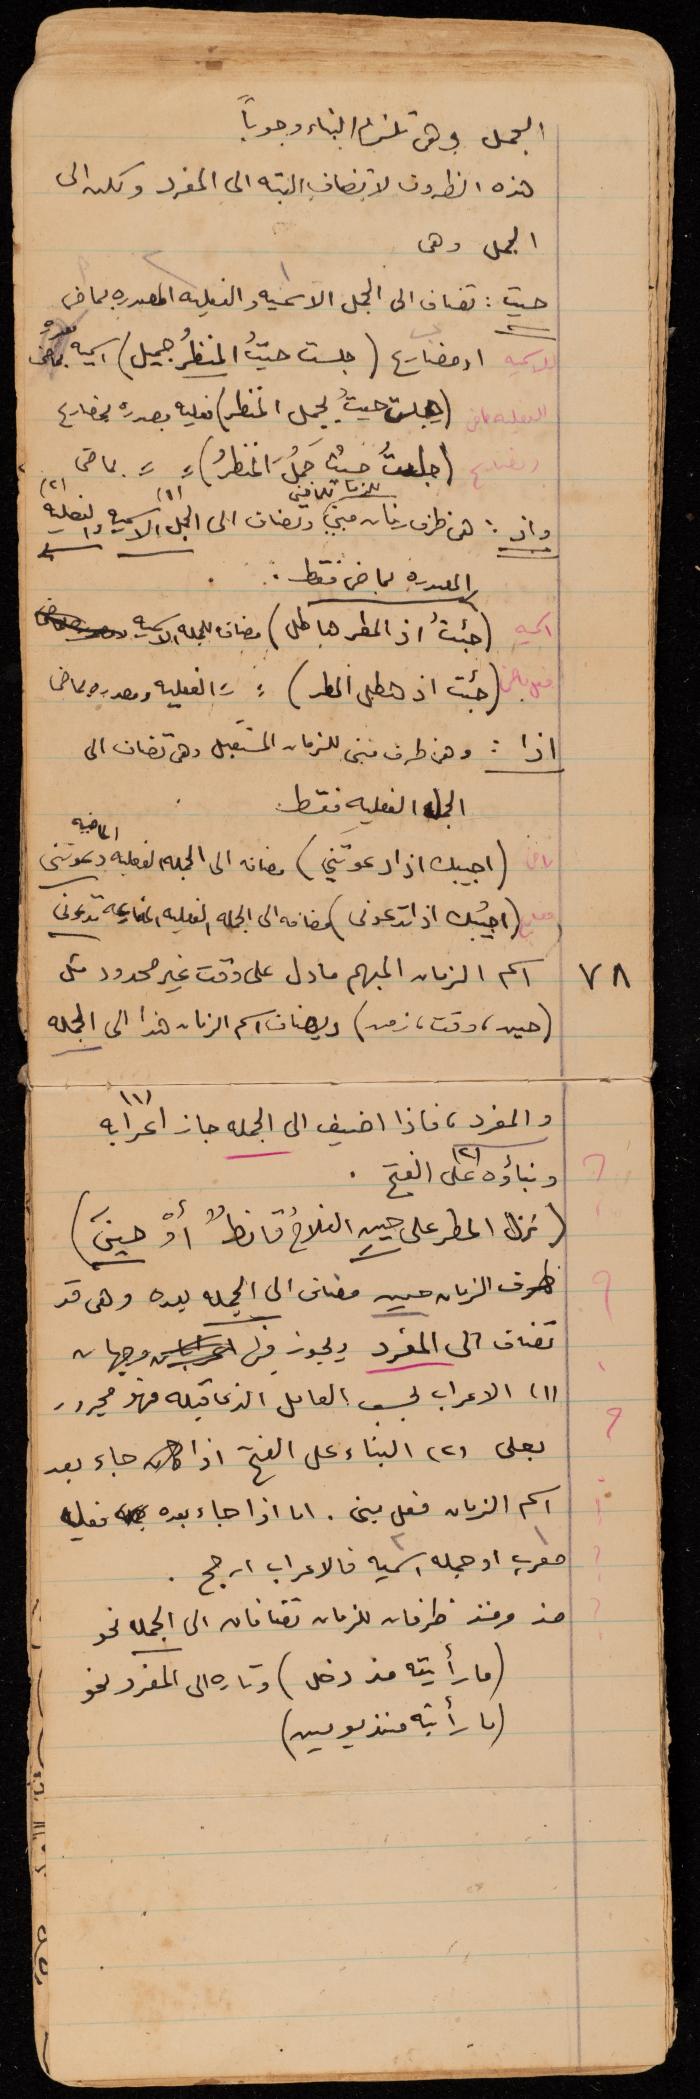 الجمل وهي تلزم البناء وجوباً
هذه الظروف لا تضاف البته الى المفرد ولكن الى
الجمل وهى
حيث : تضاف الى الجمل الاسميه والفعليه المصدره بماض
او مضارع (جلست حيثُ المنظرُ جميل) اسميه
(جلست حيثُ يجمل المنظر) فعليه مصدره بمضارع
(جلستُ حيثُ جَمُلَ المنظرُ)〃 〃 بماضى
واذ : هى ظرف زمان مبني وتضاف الى الجمل الاسميه (١) والفعليه (٢)
المصدره بماض فقط .
اسميه (جئتُ اذ المطر هاطل) مضاف للجمله الاسميه
(جئت اذ هطل المطر) 〃 〃 الفعليه ومصدره بماضى
اذا : وهى ظرف مبنى للزمان المستقبل وهى تضاف الى
الجمل الفعليه فقط
(اجيبك اذا دعوتني) مضافه الى الجمله الفعليه الماضيه دعوتنى
(اجيبك اذا تدعونى) مضافه الى الجمله الفعليه المضارعه تدعونى
٧٨ اسم الزمان المبهم مادل على وقت غير محدود مثل
(حين ، وقت ، زمن) ويضاف اسم الزمان هذا الى الجمله
والمفرد ، فاذا اضيف الى الجمله جاز اعرابه (١)
وبناؤه (٢) على الفتح .
(نزل المطر على حينِ الفلاحُ قانطٌ أوْ حينَ)
ظرف الزمان حين مضاف الى الجمله بعده وهى قد
تضاف الى المفرد ويجوز فى وجهان
(١) الاعراب بحسب العامل الذى قبله فهو مجرور
بعلى (٢) البناء على الفتح اذا جاء بعد
اسم الزمان فعل مبنى . اما اذا جاء بعده فعليه
معربه او جمله اسميه فالاعراب ارجح .
مذ ومنذ ظرفان للزمان تضافان الى الجمله نحو
(ما رأيته مذ دخل) وتاره الى المفرد نحو
(ما رأيته منذ يومين)